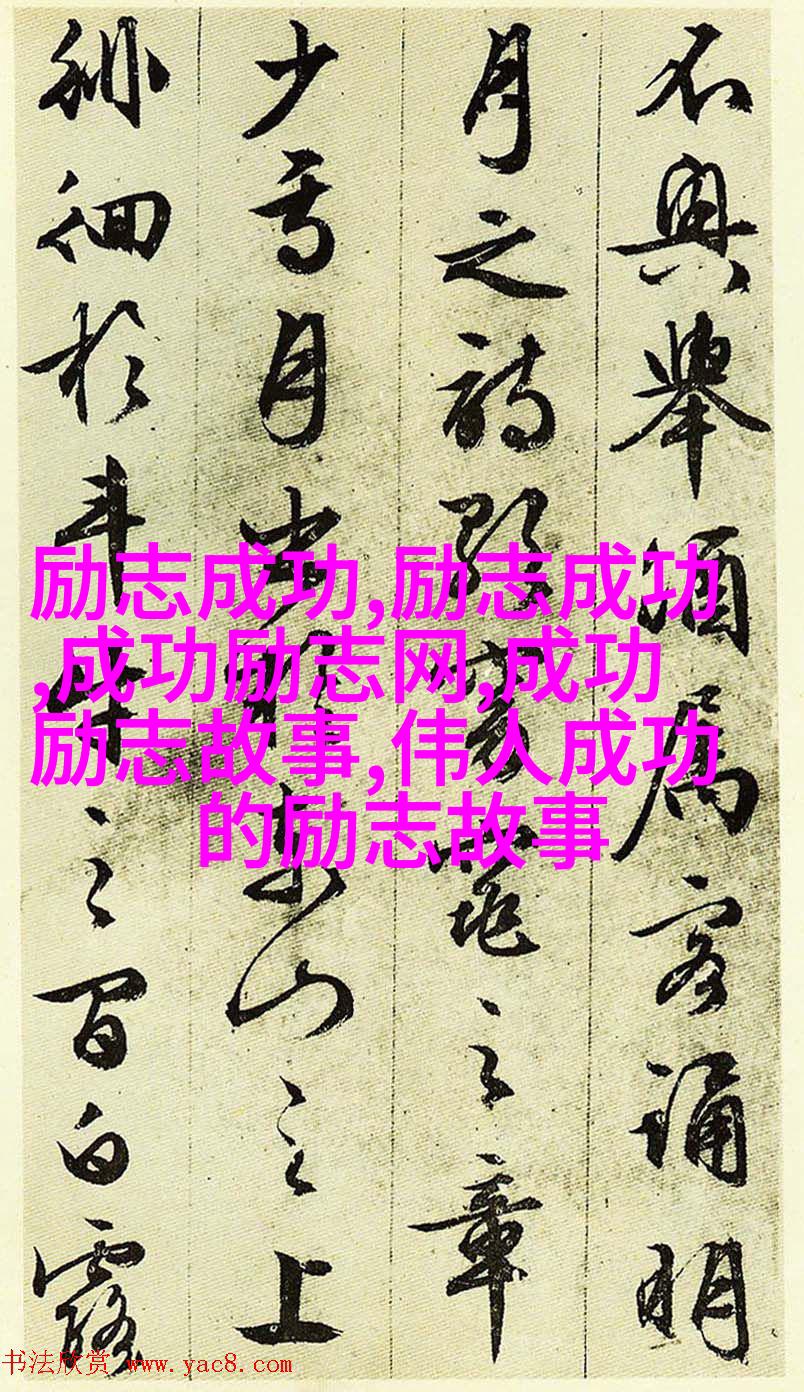 不興舉酒屬客誦明
月之詩歌窈窕之章
少焉月出於東山之上
徘徊於斗牛之間白露
励志成功,励志成功
,成功励志网,成功
励志故事,伟人成功
的励志故事
书法欣赏 www.yac8.com